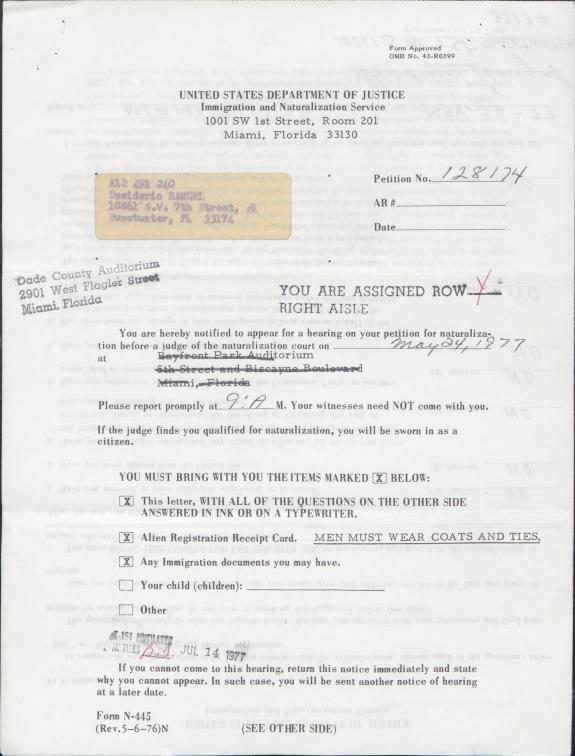 Form Approved
OMB No. 43-R0399
UNITED STATES DEPARTMENT OF JUSTICE
Immigration and Naturalization Service
1001 SW 1st Street, Room 201
Miami, Florida 33130
A12 491 240
Desiderio RANGEL
10861 S.W. 7th Street, #
Sweetwater, FL 33174
Petition No. 128174
AR #
Date
Dade County Auditorium
2901 West Flagler Street
Miami, Florida
YOU ARE ASSIGNED ROW Y
RIGHT AISLE
You are hereby notified to appear for a hearing on your petition for naturaliza-
tion before a judge of the naturalization court on May 24, 1977
at Bayfront Park Auditorium
5th Street and Biscayne Boulevard
Miami, Florida
Please report promptly at 9:A M. Your witnesses need NOT come with you.
If the judge finds you qualified for naturalization, you will be sworn in as a
citizen.
YOU MUST BRING WITH YOU THE ITEMS MARKED X BELOW:
X This letter, WITH ALL OF THE QUESTIONS ON THE OTHER SIDE
ANSWERED IN INK OR ON A TYPEWRITER.
X Alien Registration Receipt Card. MEN MUST WEAR COATS AND TIES.
X Any Immigration documents you may have.
Your child (children):
Other
MUTILATED
JUL 14 1977
If you cannot come to this hearing, return this notice immediately and state
why you cannot appear. In such case, you will be sent another notice of hearing
at a later date.
Form N-445
(Rev.5-6-76)N
(SEE OTHER SIDE)